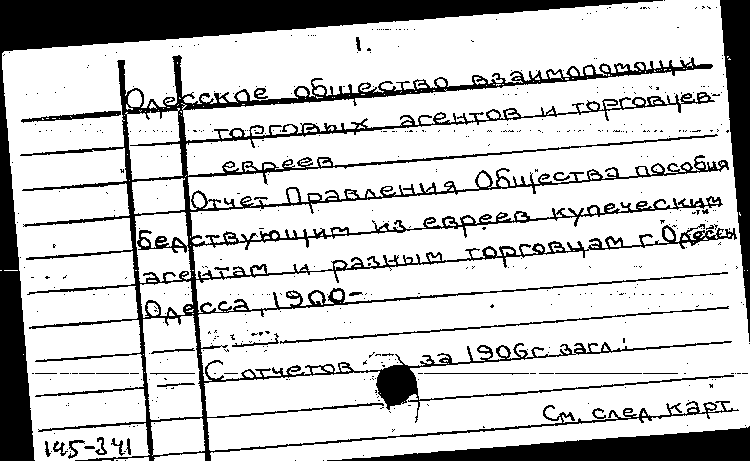 1.
Одесское общество взаимопомощи
торговых агентов и торговцев
евреев
Отчет Правления Общества пособия
бедствующим из евреев купеческим
агентам и разным торговцам г. Одессы
Одесса, 1900-
С отчетов за 1906г. загл.:
См. след. карт.
145-341